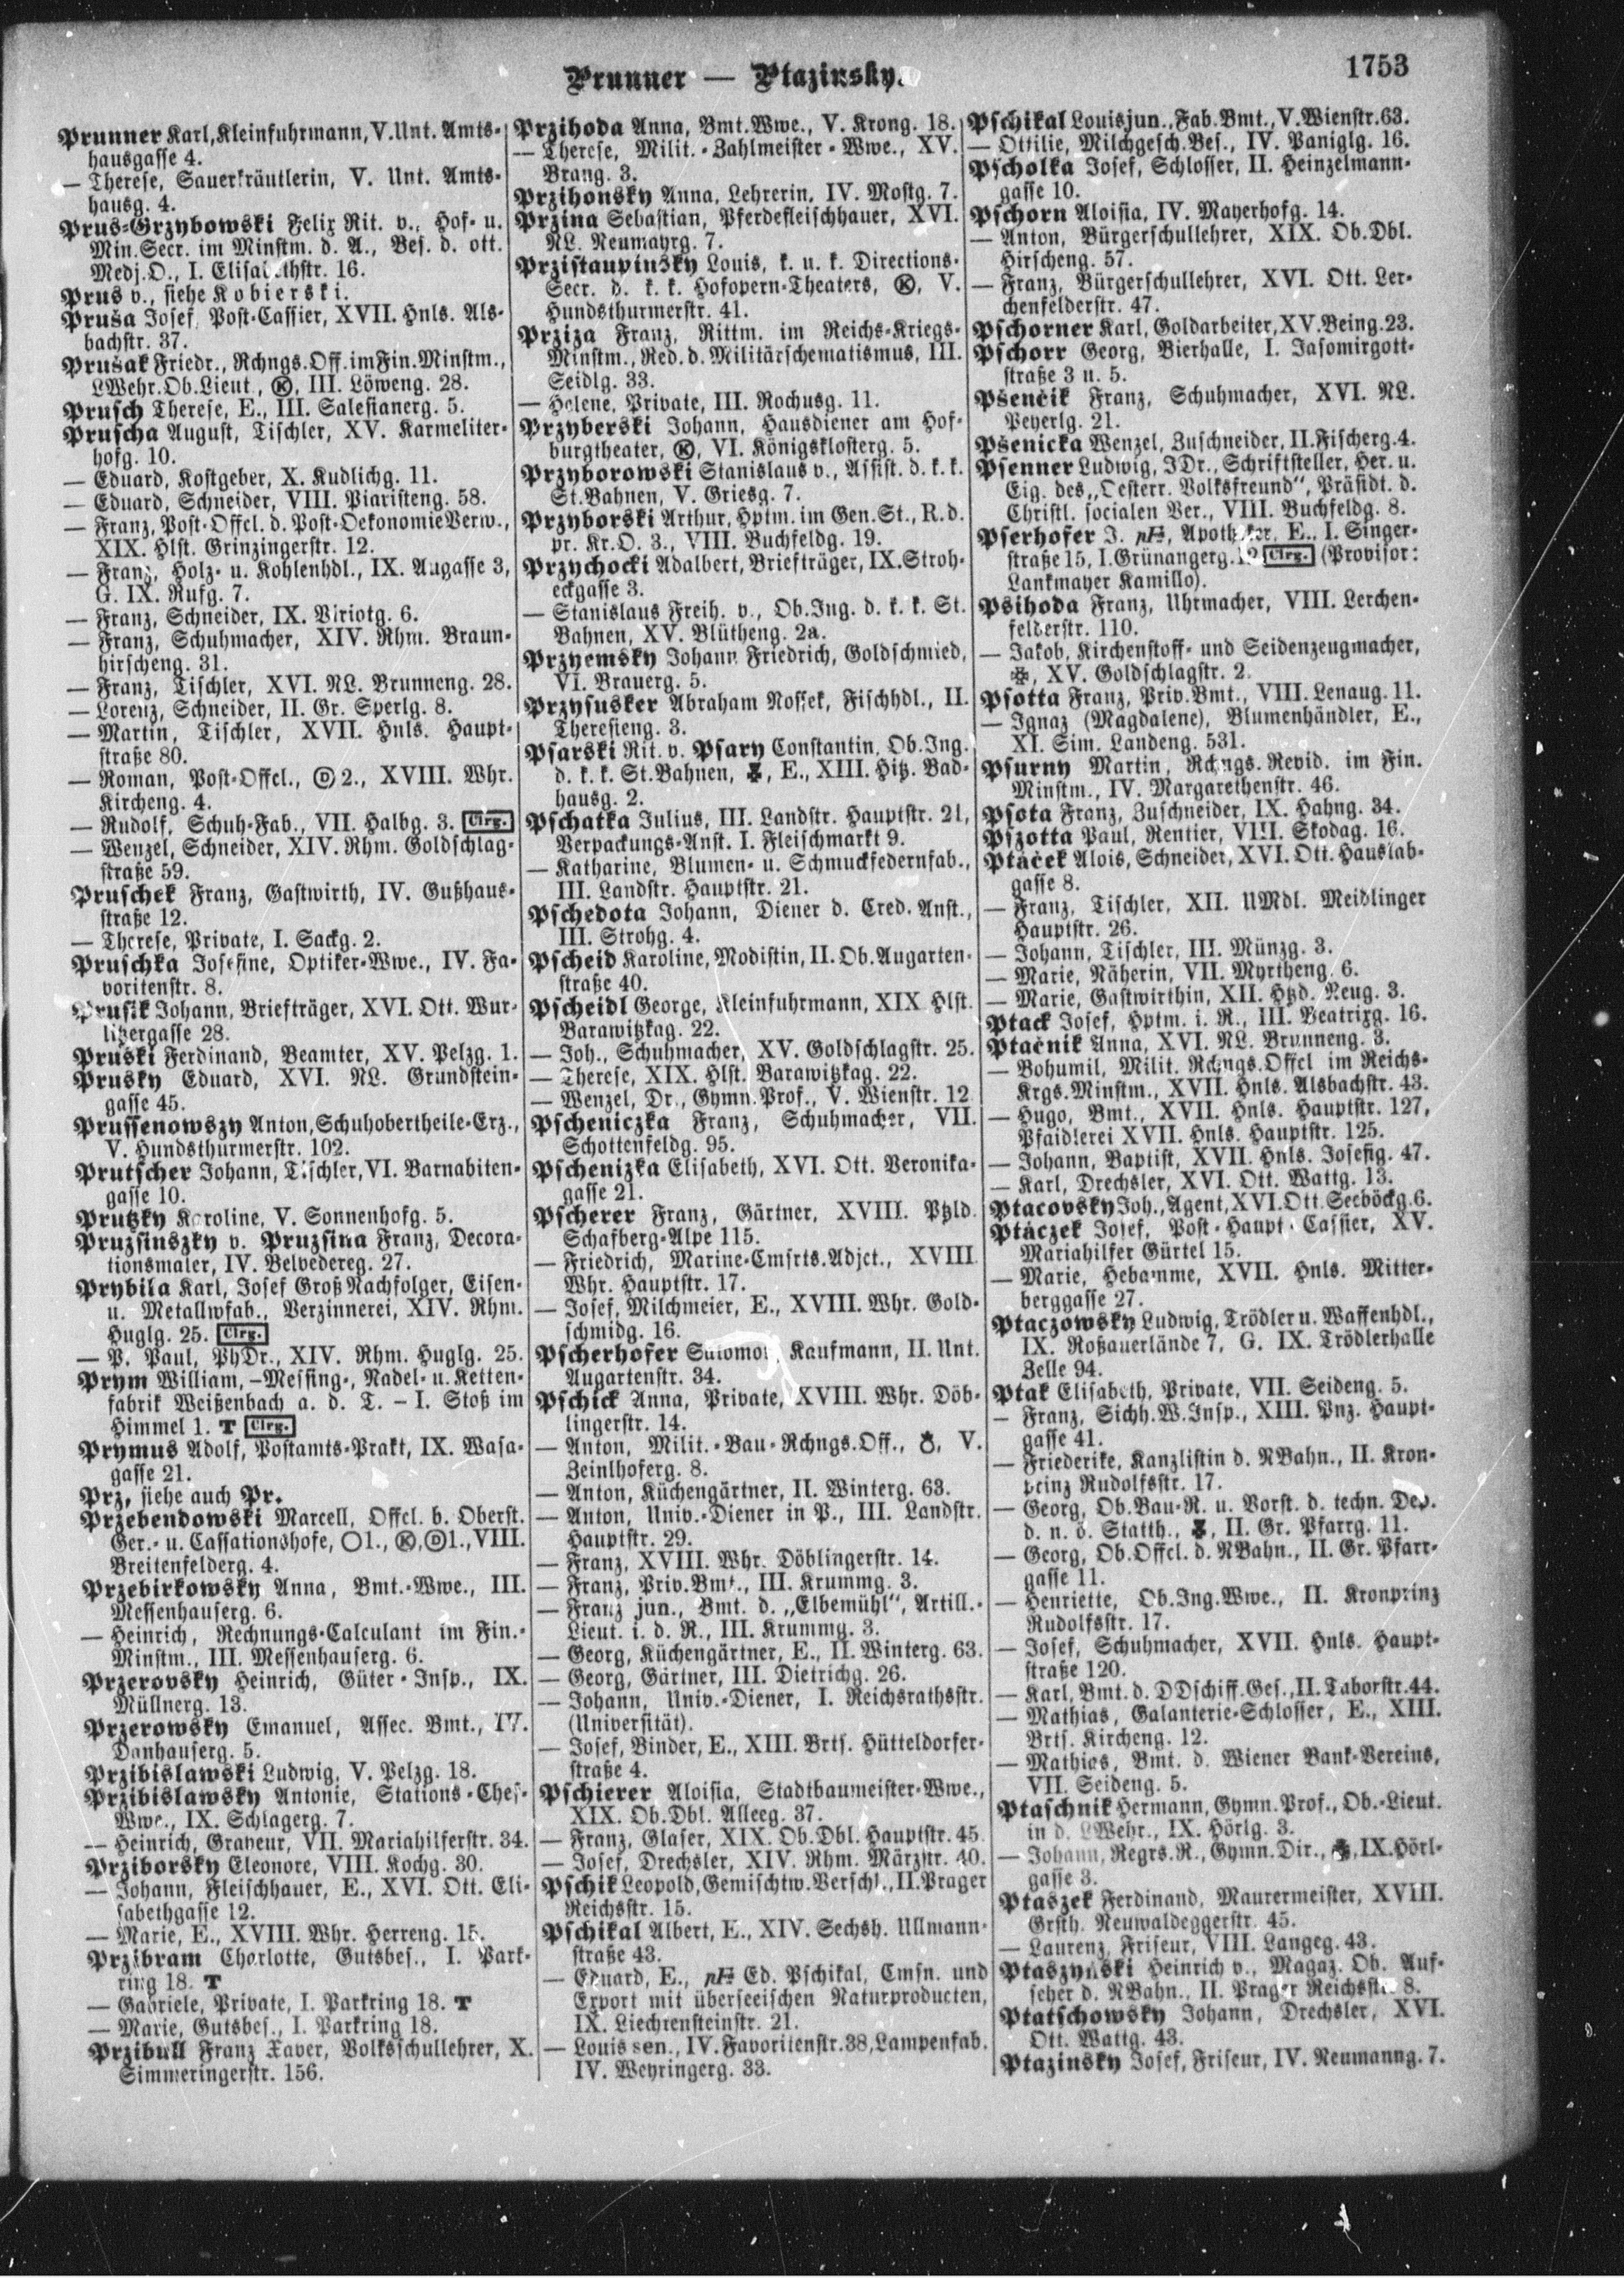 Prunner — Ptazinsky.
1753
Prunner Karl, Kleinfuhrmann, V. Unt. Amts-
hausgasse 4.
— Therese, Sauerkräutlerin, V. Unt. Amts-
hausg. 4.
Prus-Grzybowski Felix Rit. v., Hof- u.
Min.Secr. im Minstm. d. A., Bes. d. ott.
Medj.O., I. Elisabethstr. 16.
Prus v., siehe Kobierski.
Pruša Josef, Post-Cassier, XVII. Hnls. Als-
bachstr. 37.
Prušak Friedr., Rchngs.Off. im Fin.Minstm.,
LWehr.Ob.Lieut., Ⓚ, III. Löweng. 28.
Prusch Therese, E., III. Salesianerg. 5.
Pruscha August, Tischler, XV. Karmeliter-
hofg. 10.
— Eduard, Kostgeber, X. Kudlichg. 11.
— Eduard, Schneider, VIII. Piaristeng. 58.
— Franz, Post-Offcl. d. Post-OekonomieVerw.,
XIX. Hlst. Grinzingerstr. 12.
— Franz, Holz- u. Kohlenhdl., IX. Augasse 3,
G. IX. Rufg. 7.
— Franz, Schneider, IX. Viriotg. 6.
— Franz, Schuhmacher, XIV. Rhm. Braun-
hirscheng. 31.
— Franz, Tischler, XVI. NL. Brunneng. 28.
— Lorenz, Schneider, II. Gr. Sperlg. 8.
— Martin, Tischler, XVII. Hnls. Haupt-
straße 80.
— Roman, Post-Offcl., Ⓓ 2., XVIII. Whr.
Kircheng. 4.
— Rudolf, Schuh-Fab., VII. Halbg. 3. Clrg.
— Wenzel, Schneider, XIV. Rhm. Goldschlag-
straße 59.
Pruschek Franz, Gastwirth, IV. Gußhaus-
straße 12.
— Therese, Private, I. Sackg. 2.
Pruschka Josefine, Optiker-Wwe., IV. Fa-
voritenstr. 8.
Prusik Johann, Briefträger, XVI. Ott. Wur-
litzergasse 28.
Pruski Ferdinand, Beamter, XV. Pelzg. 1.
Prusky Eduard, XVI. NL. Grundstein-
gasse 45.
Prussenowszy Anton, Schuhobertheile-Erz.,
V. Hundsthurmerstr. 102.
Prutscher Johann, Tischler, VI. Barnabiten-
gasse 10.
Prutzky Karoline, V. Sonnenhofg. 5.
Pruzsinszky v. Pruzsina Franz, Decora-
tionsmaler, IV. Belvedereg. 27.
Prybila Karl, Josef Groß Nachfolger, Eisen-
u. Metallwfab., Verzinnerei, XIV. Rhm.
Huglg. 25. Clrg.
— P. Paul, PhDr., XIV. Rhm. Huglg. 25.
Prym William, –Messing-, Nadel- u. Ketten-
fabrik Weißenbach a. d. T. – I. Stoß im
Himmel 1. T Clrg.
Prymus Adolf, Postamts-Prakt, IX. Wasa-
gasse 21.
Prz, siehe auch Pr.
Przebendowski Marcell, Offcl. b. Oberst.
Ger.- u. Cassationshofe, ◯1., Ⓚ, Ⓓ1., VIII.
Breitenfelderg. 4.
Przebirkowsky Anna, Bmt.-Wwe., III.
Messenhauserg. 6.
— Heinrich, Rechnungs-Calculant im Fin.-
Minstm., III. Messenhauserg. 6.
Przerovsky Heinrich, Güter-Insp., IX.
Müllnerg. 13.
Przerowsky Emanuel, Assec. Bmt., IV.
Danhauserg. 5.
Przibislawski Ludwig, V. Pelzg. 18.
Przibislawsky Antonie, Stations-Chef-
Wwe., IX. Schlagerg. 7.
— Heinrich, Graveur, VII. Mariahilferstr. 34.
Prziborsky Eleonore, VIII. Kochg. 30.
— Johann, Fleischhauer, E., XVI. Ott. Eli-
sabethgasse 12.
— Marie, E., XVIII. Whr. Herreng. 15.
Przibram Charlotte, Gutsbes., I. Park-
ring 18. T
— Gabriele, Private, I. Parkring 18. T
— Marie, Gutsbes., I. Parkring 18.
Przibull Franz Xaver, Volksschullehrer, X.
Simmeringerstr. 156.
Przihoda Anna, Bmt.Wwe., V. Krong. 18.
— Therese, Milit.-Zahlmeister-Wwe., XV.
Brang. 3.
Przihonsky Anna, Lehrerin, IV. Mostg. 7.
Przina Sebastian, Pferdefleischhauer, XVI.
NL. Neumayrg. 7.
Przistaupinsky Louis, k. u. k. Directions-
Secr. d. k. k. Hofopern-Theaters, Ⓚ, V.
Hundsthurmerstr. 41.
Prziza Franz, Rittm. im Reichs-Kriegs-
Minstm., Red. d. Militärschematismus, III.
Seidlg. 33.
— Helene, Private, III. Rochusg. 11.
Przyberski Johann, Hausdiener am Hof-
burgtheater, Ⓚ, VI. Königsklosterg. 5.
Przyborowski Stanislaus v., Assist. d. k. k.
St.Bahnen, V. Griesg. 7.
Przyborski Arthur, Hptm. im Gen.St., R. d.
pr. Kr.O. 3., VIII. Buchfeldg. 19.
Przychocki Adalbert, Briefträger, IX. Stroh-
eckgasse 3.
— Stanislaus Freih. v., Ob.Ing. d. k. k. St.
Bahnen, XV. Blütheng. 2a.
Przyemsky Johann Friedrich, Goldschmied,
VI. Brauerg. 5.
Przysusker Abraham Nossek, Fischhdl., II.
Theresieng. 3.
Psarski Rit. v. Psary Constantin, Ob.Ing.
d. k. k. St.Bahnen, E., XIII. Hitz. Bad-
hausg. 2.
Pschatka Julius, III. Landstr. Hauptstr. 21,
Verpackungs-Anst. I. Fleischmarkt 9.
— Katharine, Blumen- u. Schmuckfedernfab.,
III. Landstr. Hauptstr. 21.
Pschedota Johann, Diener d. Cred. Anst.,
III. Strohg. 4.
Pscheid Karoline, Modistin, II. Ob. Augarten-
straße 40.
Pscheidl George, Kleinfuhrmann, XIX. Hlst.
Barawitzkag. 22.
— Joh., Schuhmacher, XV. Goldschlagstr. 25.
— Therese, XIX. Hlst. Barawitzkag. 22.
— Wenzel, Dr., Gymn.Prof., V. Wienstr. 12
Pscheniczka Franz, Schuhmacher, VII.
Schottenfeldg. 95.
Pschenizka Elisabeth, XVI. Ott. Veronika-
gasse 21.
Pscherer Franz, Gärtner, XVIII. Ptzld.
Schafberg-Alpe 115.
— Friedrich, Marine-Cmsrts.Adjct., XVIII.
Whr. Hauptstr. 17.
— Josef, Milchmeier, E., XVIII. Whr. Gold-
schmidg. 16.
Pscherhofer Salomon, Kaufmann, II. Unt.
Augartenstr. 34.
Pschick Anna, Private, XVIII. Whr. Döb-
lingerstr. 14.
— Anton, Milit.-Bau-Rchngs.Off., V.
Zeinlhoferg. 8.
— Anton, Küchengärtner, II. Winterg. 63.
— Anton, Univ.-Diener in P., III. Landstr.
Hauptstr. 29.
— Franz, XVIII. Whr. Döblingerstr. 14.
— Franz, Priv.Bmt., III. Krummg. 3.
— Franz jun., Bmt. d. „Elbemühl“, Artill.-
Lieut. i. d. R., III. Krummg. 3.
— Georg, Küchengärtner, E., II. Winterg. 63.
— Georg, Gärtner, III. Dietrichg. 26.
— Johann, Univ.-Diener, I. Reichsrathsstr.
(Universität).
— Josef, Binder, E., XIII. Brts. Hütteldorfer-
straße 4.
Pschierer Aloisia, Stadtbaumeister-Wwe.,
XIX. Ob.Dbl. Alleeg. 37.
— Franz, Glaser, XIX. Ob.Dbl. Hauptstr. 45.
— Josef, Drechsler, XIV. Rhm. Märzstr. 40.
Pschik Leopold, Gemischtw.Verschl., II. Prager
Reichsstr. 15.
Pschikal Albert, E., XIV. Sechsh. Ullmann-
straße 43.
— Eduard, E., pF Ed. Pschikal, Cmsn. und
Export mit überseeischen Naturproducten,
IX. Liechtensteinstr. 21.
— Louis sen., IV. Favoritenstr. 38, Lampenfab.
IV. Weyringerg. 33.
Pschikal Louis jun., Fab.Bmt., V. Wienstr. 63.
— Ottilie, Milchgesch.Bes., IV. Paniglg. 16.
Pscholka Josef, Schlosser, II. Heinzelmann-
gasse 10.
Pschorn Aloisia, IV. Mayerhofg. 14.
— Anton, Bürgerschullehrer, XIX. Ob.Dbl.
Hirscheng. 57.
— Franz, Bürgerschullehrer, XVI. Ott. Ler-
chenfelderstr. 47.
Pschorner Karl, Goldarbeiter, XV. Being. 23.
Pschorr Georg, Bierhalle, I. Jasomirgott-
straße 3 u. 5.
Pšenčik Franz, Schuhmacher, XVI. NL.
Peyerlg. 21.
Pšenicka Wenzel, Zuschneider, II. Fischerg. 4.
Psenner Ludwig, JDr., Schriftsteller, Her. u.
Eig. des „Oesterr. Volksfreund“, Präsidt. d.
Christl. socialen Ver., VIII. Buchfeldg. 8.
Pserhofer J. pF, Apotheker, E., I. Singer-
straße 15, I. Grünangerg. Clrg. (Provisor:
Lankmayer Kamillo).
Psihoda Franz, Uhrmacher, VIII. Lerchen-
felderstr. 110.
— Jakob, Kirchenstoff- und Seidenzeugmacher,
XV. Goldschlagstr. 2.
Psotta Franz, Priv.Bmt., VIII. Lenaug. 11.
— Ignaz (Magdalene), Blumenhändler, E.,
XI. Sim. Landeng. 531.
Psurny Martin, Rchngs.Revid. im Fin.
Minstm., IV. Margarethenstr. 46.
Psota Franz, Zuschneider, IX. Hahng. 34.
Pszotta Paul, Rentier, VIII. Skodag. 16.
Ptáček Alois, Schneider, XVI. Ott. Hauslab-
gasse 8.
— Franz, Tischler, XII. UMdl. Meidlinger
Hauptstr. 26.
— Johann, Tischler, III. Münzg. 3.
— Marie, Näherin, VII. Myrtheng. 6.
— Marie, Gastwirthin, XII. Htzd. Neug. 3.
Ptack Josef, Hptm. i. R., III. Beatrixg. 16.
Ptačnik Anna, XVI. NL. Brunneng. 3.
— Bohumil, Milit. Rchngs.Offcl im Reichs-
Krgs.Minstm., XVII. Hnls. Alsbachstr. 43.
— Hugo, Bmt., XVII. Hnls. Hauptstr. 127,
Pfaidlerei XVII. Hnls. Hauptstr. 125.
— Johann, Baptist, XVII. Hnls. Josefig. 47.
— Karl, Drechsler, XVI. Ott. Wattg. 13.
Ptacovsky Joh., Agent, XVI. Ott. Seeböckg. 6.
Ptáczek Josef, Post-Haupt-Cassier, XV.
Mariahilfer Gürtel 15.
— Marie, Hebamme, XVII. Hnls. Mitter-
berggasse 27.
Ptaczowsky Ludwig, Trödler u. Waffenhdl.,
IX. Roßauerlände 7, G. IX. Trödlerhalle
Zelle 94.
Ptak Elisabeth, Private, VII. Seideng. 5.
— Franz, Sichh.W.Insp., XIII. Pnz. Haupt-
gasse 41.
— Friederike, Kanzlistin d. NBahn., II. Kron-
prinz Rudolfsstr. 17.
— Georg, Ob.Bau-R. u. Vorst. d. techn. Dep.
d. n. ö. Statth., II. Gr. Pfarrg. 11.
— Georg, Ob.Offcl. d. NBahn., II. Gr. Pfarr-
gasse 11.
— Henriette, Ob.Ing.Wwe., II. Kronprinz
Rudolfsstr. 17.
— Josef, Schuhmacher, XVII. Hnls. Haupt-
straße 120.
— Karl, Bmt. d. DDschiff.Ges., II. Taborstr. 44.
— Mathias, Galanterie-Schlosser, E., XIII.
Brts. Kircheng. 12.
— Mathias, Bmt. d. Wiener Bank-Vereins,
VII. Seideng. 5.
Ptaschnik Hermann, Gymn. Prof., Ob.-Lieut.
in d. LWehr., IX. Hörlg. 3.
— Johann, Regrs.R., Gymn.Dir., IX. Hörl-
gasse 3.
Ptaszek Ferdinand, Maurermeister, XVIII.
Grsth. Neuwaldeggerstr. 45.
— Laurenz, Friseur, VIII. Langeg. 43.
Ptaszynski Heinrich v., Magaz. Ob. Auf-
seher d. NBahn., II. Prager Reichsstr. 8.
Ptatschowsky Johann, Drechsler, XVI.
Ott. Wattg. 43.
Ptazinsky Josef, Friseur, IV. Neumanng. 7.